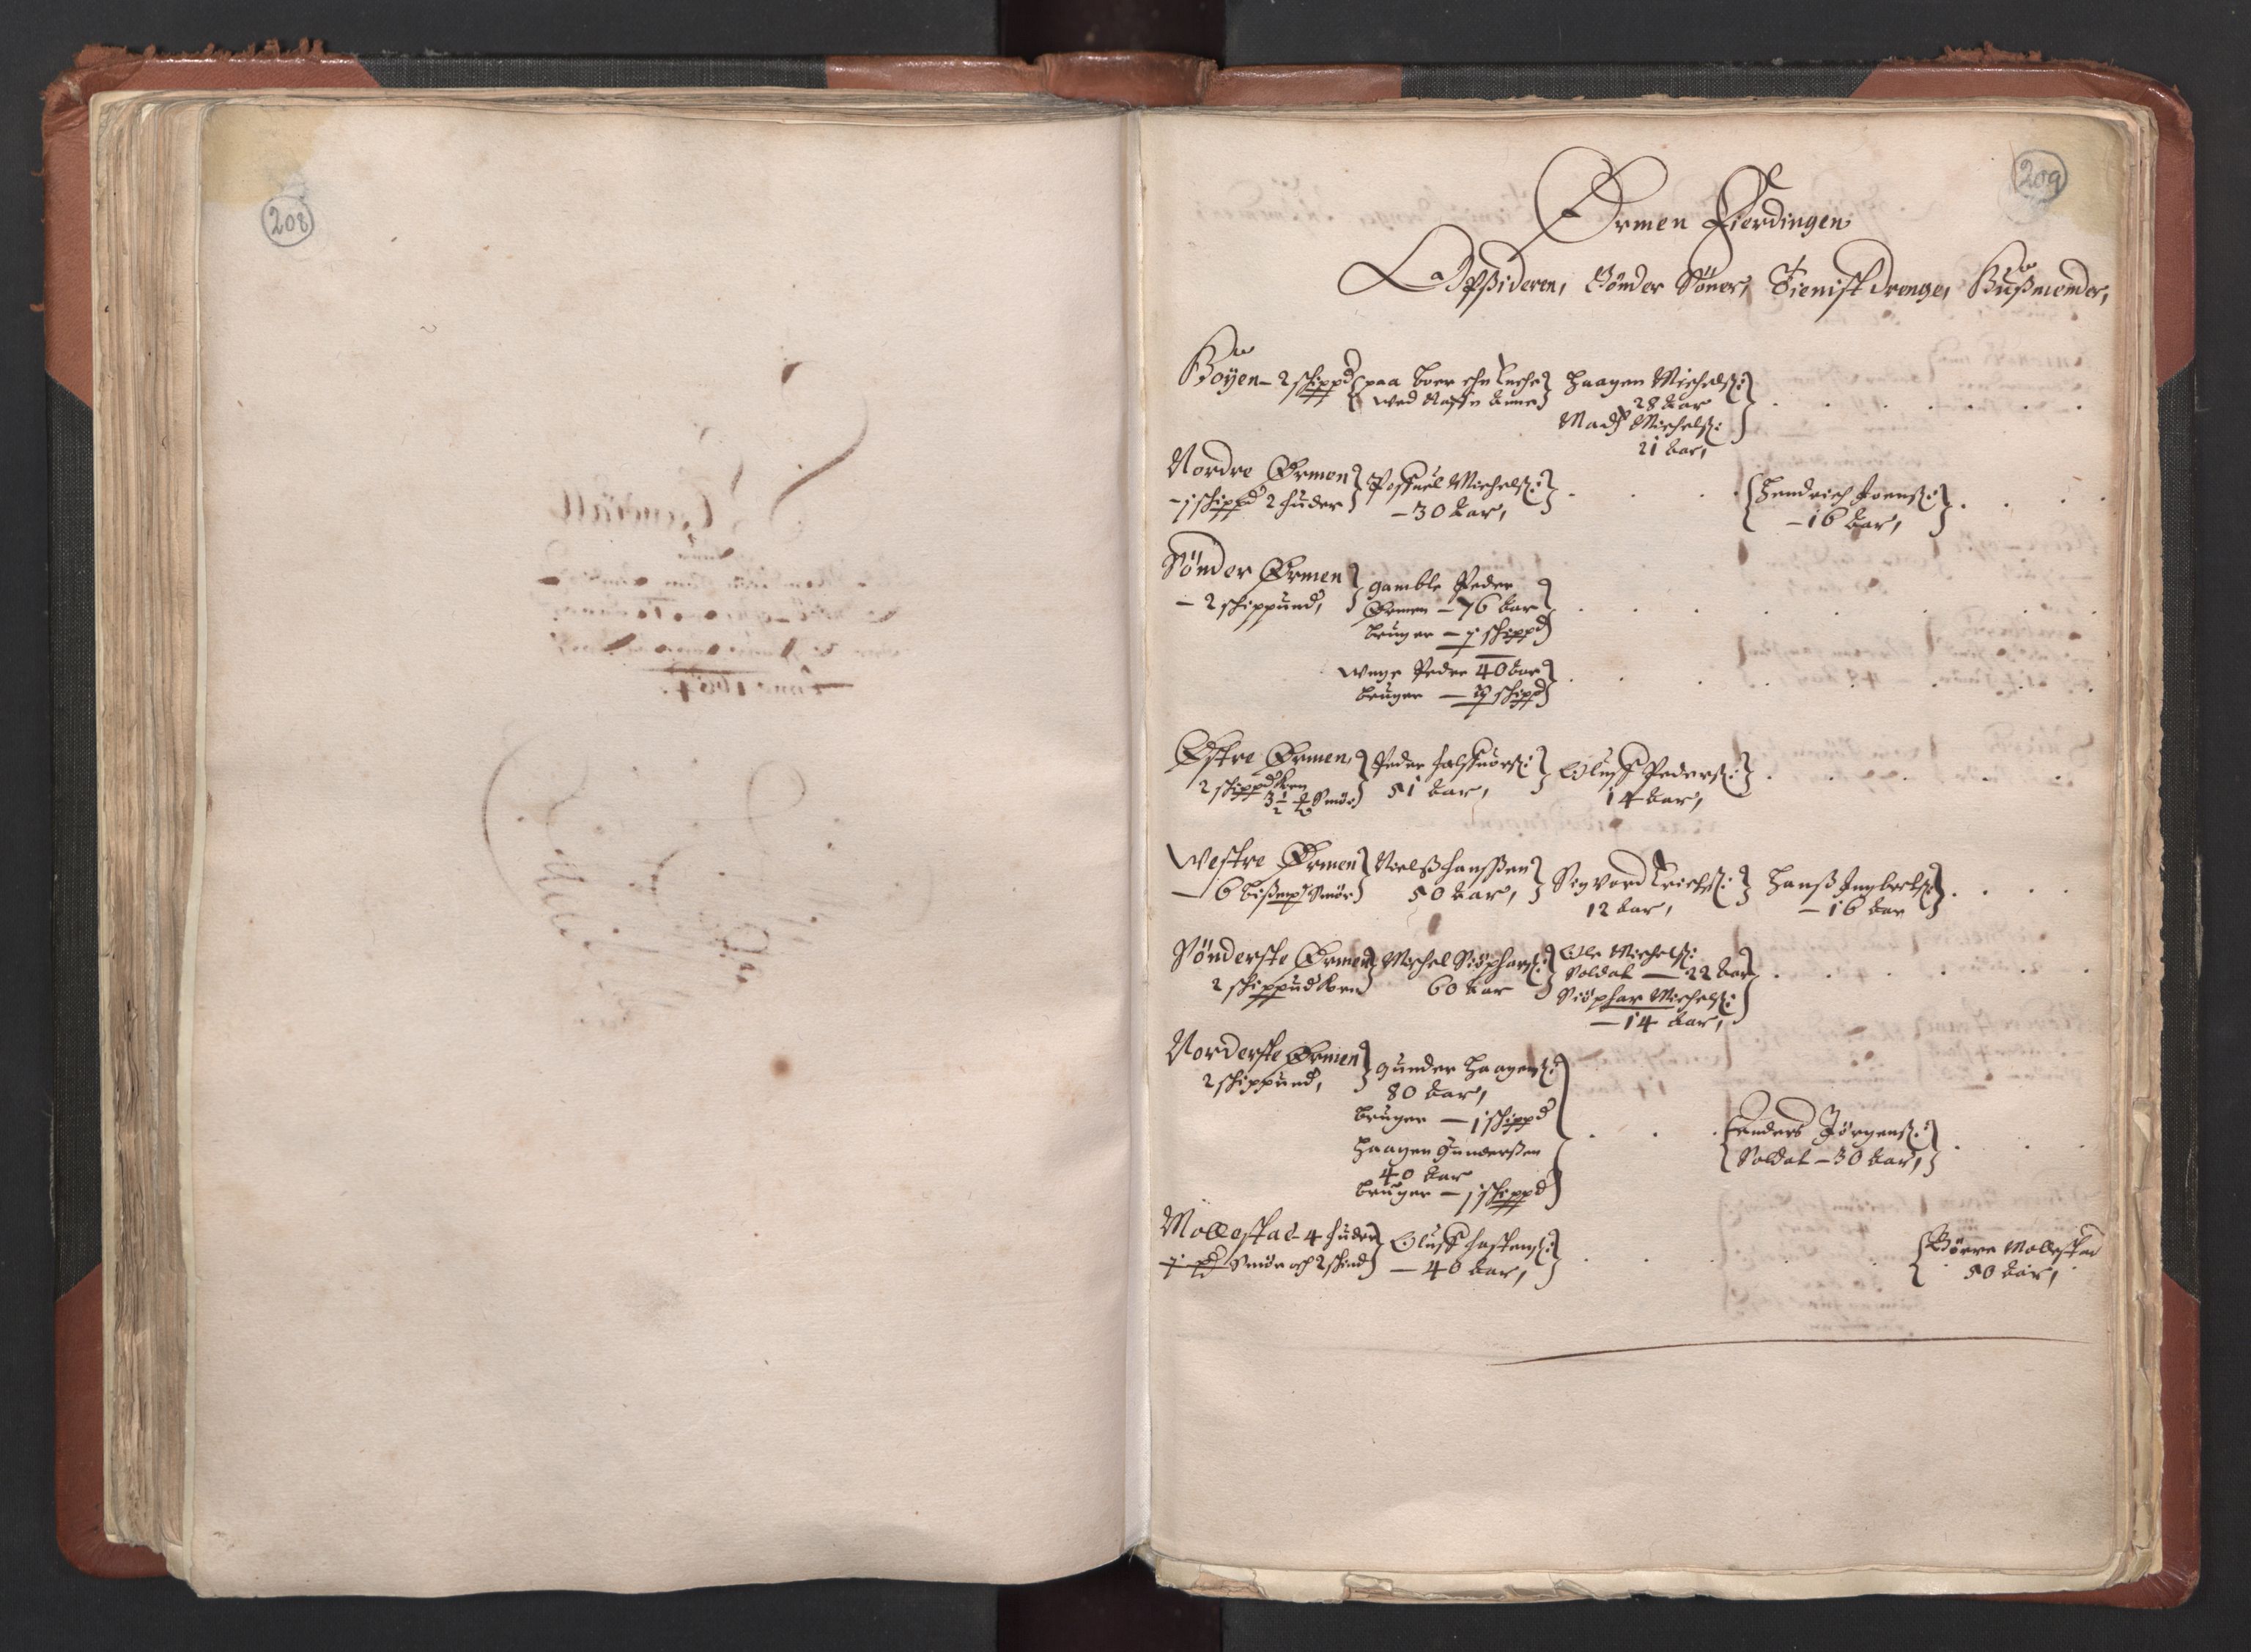 208
209
Ørmen Fierdingen
Opsideren, Bønder Sønner, Tienist Drenge, Hußmender,
Bøyen - 2 schippd paa boer ehn Enche
wed Naffn Anne
Haagen Michelß:
28 aar
Madß Michelß:
21 aar,
Nordre Ørmen
- j schippd 2 huder
Poffuel Michelß:
- 30 aar,
Hendrich Joenß:
- 16 aar,
Sønder Ørmen
- 2 schippund,
gamble Peder
Ørmen - 76 aar
bruger - j schippd
Unge Peder 40 aar
bruger - j schippd
Østre Ørmen,
2 schippd korn
3 1/2 Smør
Peder Halffuorß:
51 aar,
Oluff Pederß:
14 aar,
Westre Ørmen
- 6 bißmpd Smør
Nielß Hanßen
50 aar,
Sigvord Erichß:
12 aar,
Hanß Ingbretß:
- 16 aar
Sønderste Ørmen
2 schippud korn
Michel Siøpharß:
60 aar
Ole Michelß:
Soldat - 22 aar
Siøphar Michelß:
- 14 aar,
Norderste Ørmen
2 schippund,
Gunder Haagenß:
80 aar,
bruger - j schippd
Haagen Gunderßen
40 aar
bruger - j schippd
Anders Jørgenß:
Soldat - 30 aar,
Mollestad - 4 huder
Smør och 2 skind
Oluff
- 40 aar,
Børre Mollestad
50 aar,